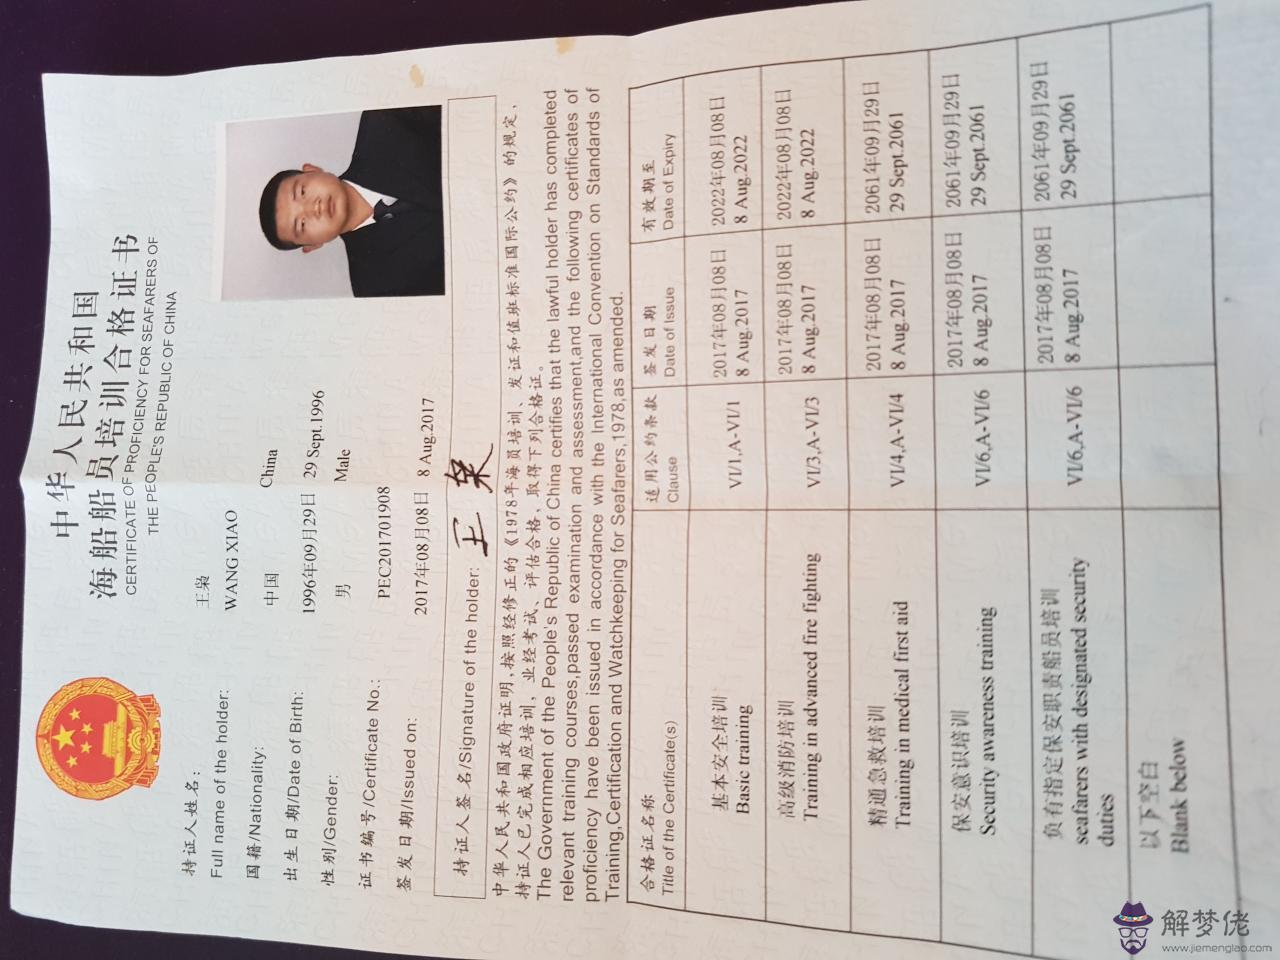 中华人民共和国
海船船员培训合格证书
CERTIFICATE OF PROFICIENCY FOR SEAFARERS OF
THE PEOPLE'S REPUBLIC OF CHINA
持证人姓名: 王枭
Full name of the holder: WANG XIAO
国籍/Nationality: 中国 China
出生日期/Date of Birth: 1996年09月29日 29 Sept.1996
性别/Gender: 男 Male
证书编号/Certificate No.: PEC201701908
签发日期/Issued on: 2017年08月08日 8 Aug.2017
持证人签名/Signature of the holder: 王枭
中华人民共和国政府证明,按照经修正的《1978年海员培训、发证和值班标准国际公约》的规定,
持证人已完成相应培训,业经考试、评估合格,取得下列合格证。
The Government of the People's Republic of China certifies that the lawful holder has completed
relevant training courses,passed examination and assessment,and the following certificates of
proficiency have been issued in accordance with the International Convention on Standards of
Training,Certification and Watchkeeping for Seafarers,1978,as amended.
合格证名称 适用公约条款 签发日期 有效期至
Title of the Certificate(s) Clause Date of Issue Date of Expiry
基本安全培训 VI/1,A-VI/1 2017年08月08日 2022年08月08日
Basic training 8 Aug.2017 8 Aug.2022
高级消防培训 VI/3,A-VI/3 2017年08月08日 2022年08月08日
Training in advanced fire fighting 8 Aug.2017 8 Aug.2022
精通急救培训 VI/4,A-VI/4 2017年08月08日 2061年09月29日
Training in medical first aid 8 Aug.2017 29 Sept.2061
保安意识培训 VI/6,A-VI/6 2017年08月08日 2061年09月29日
Security awareness training 8 Aug.2017 29 Sept.2061
负有指定保安职责船员培训 VI/6,A-VI/6 2017年08月08日 2061年09月29日
seafarers with designated security 8 Aug.2017 29 Sept.2061
duties
以下空白
Blank below
解梦佬
www.jiemenglao.com